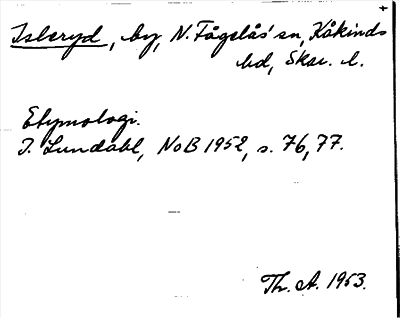 Isleryd, by, N. Fågelås' sn, Kåkinds
hd, Skar. l.
Etymologi.
I. Lundahl, NoB 1952, s. 76, 77.
Th. A. 1953.